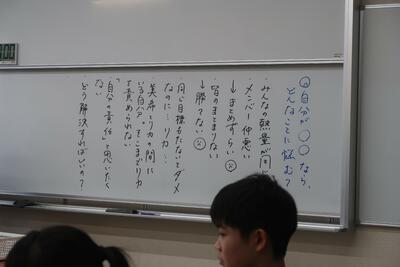 ◎自分が〇〇なら、
どんなことに悩む?
・みんなの熱量が同
・メンバー仲悪い
↓まとめずらい☹
・皆のまとまりない
↓勝てない☹
・同じ目標もたないとダメ
なのに…リカ…
・美希とリカの間に
いる自分。そこまでリカ
を責められない
「自分の責任」と思いたく
ない
どう解決すればいいの?